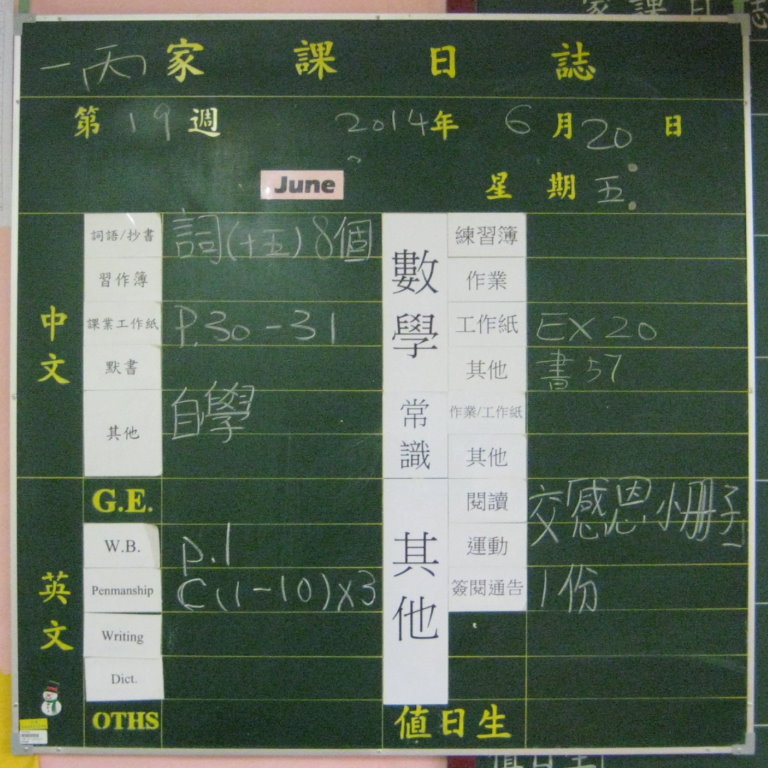 一丙 家課日誌
第19週 2014年6月20日
June 星期五
中文
詞語/抄書 詞(十五)8個
習作簿
課業工作紙 P.30-31
默書
其他 自學
英文
G.E.
W.B. p.1
Penmanship C(1-10)x3
Writing
Dict.
OTHS
數學
練習簿
作業
工作紙 EX 20
其他 書57
常識
作業/工作紙
其他
其他
閱讀 交感恩小冊子
運動
簽閱通告 1份
值日生
家課日誌
值日生